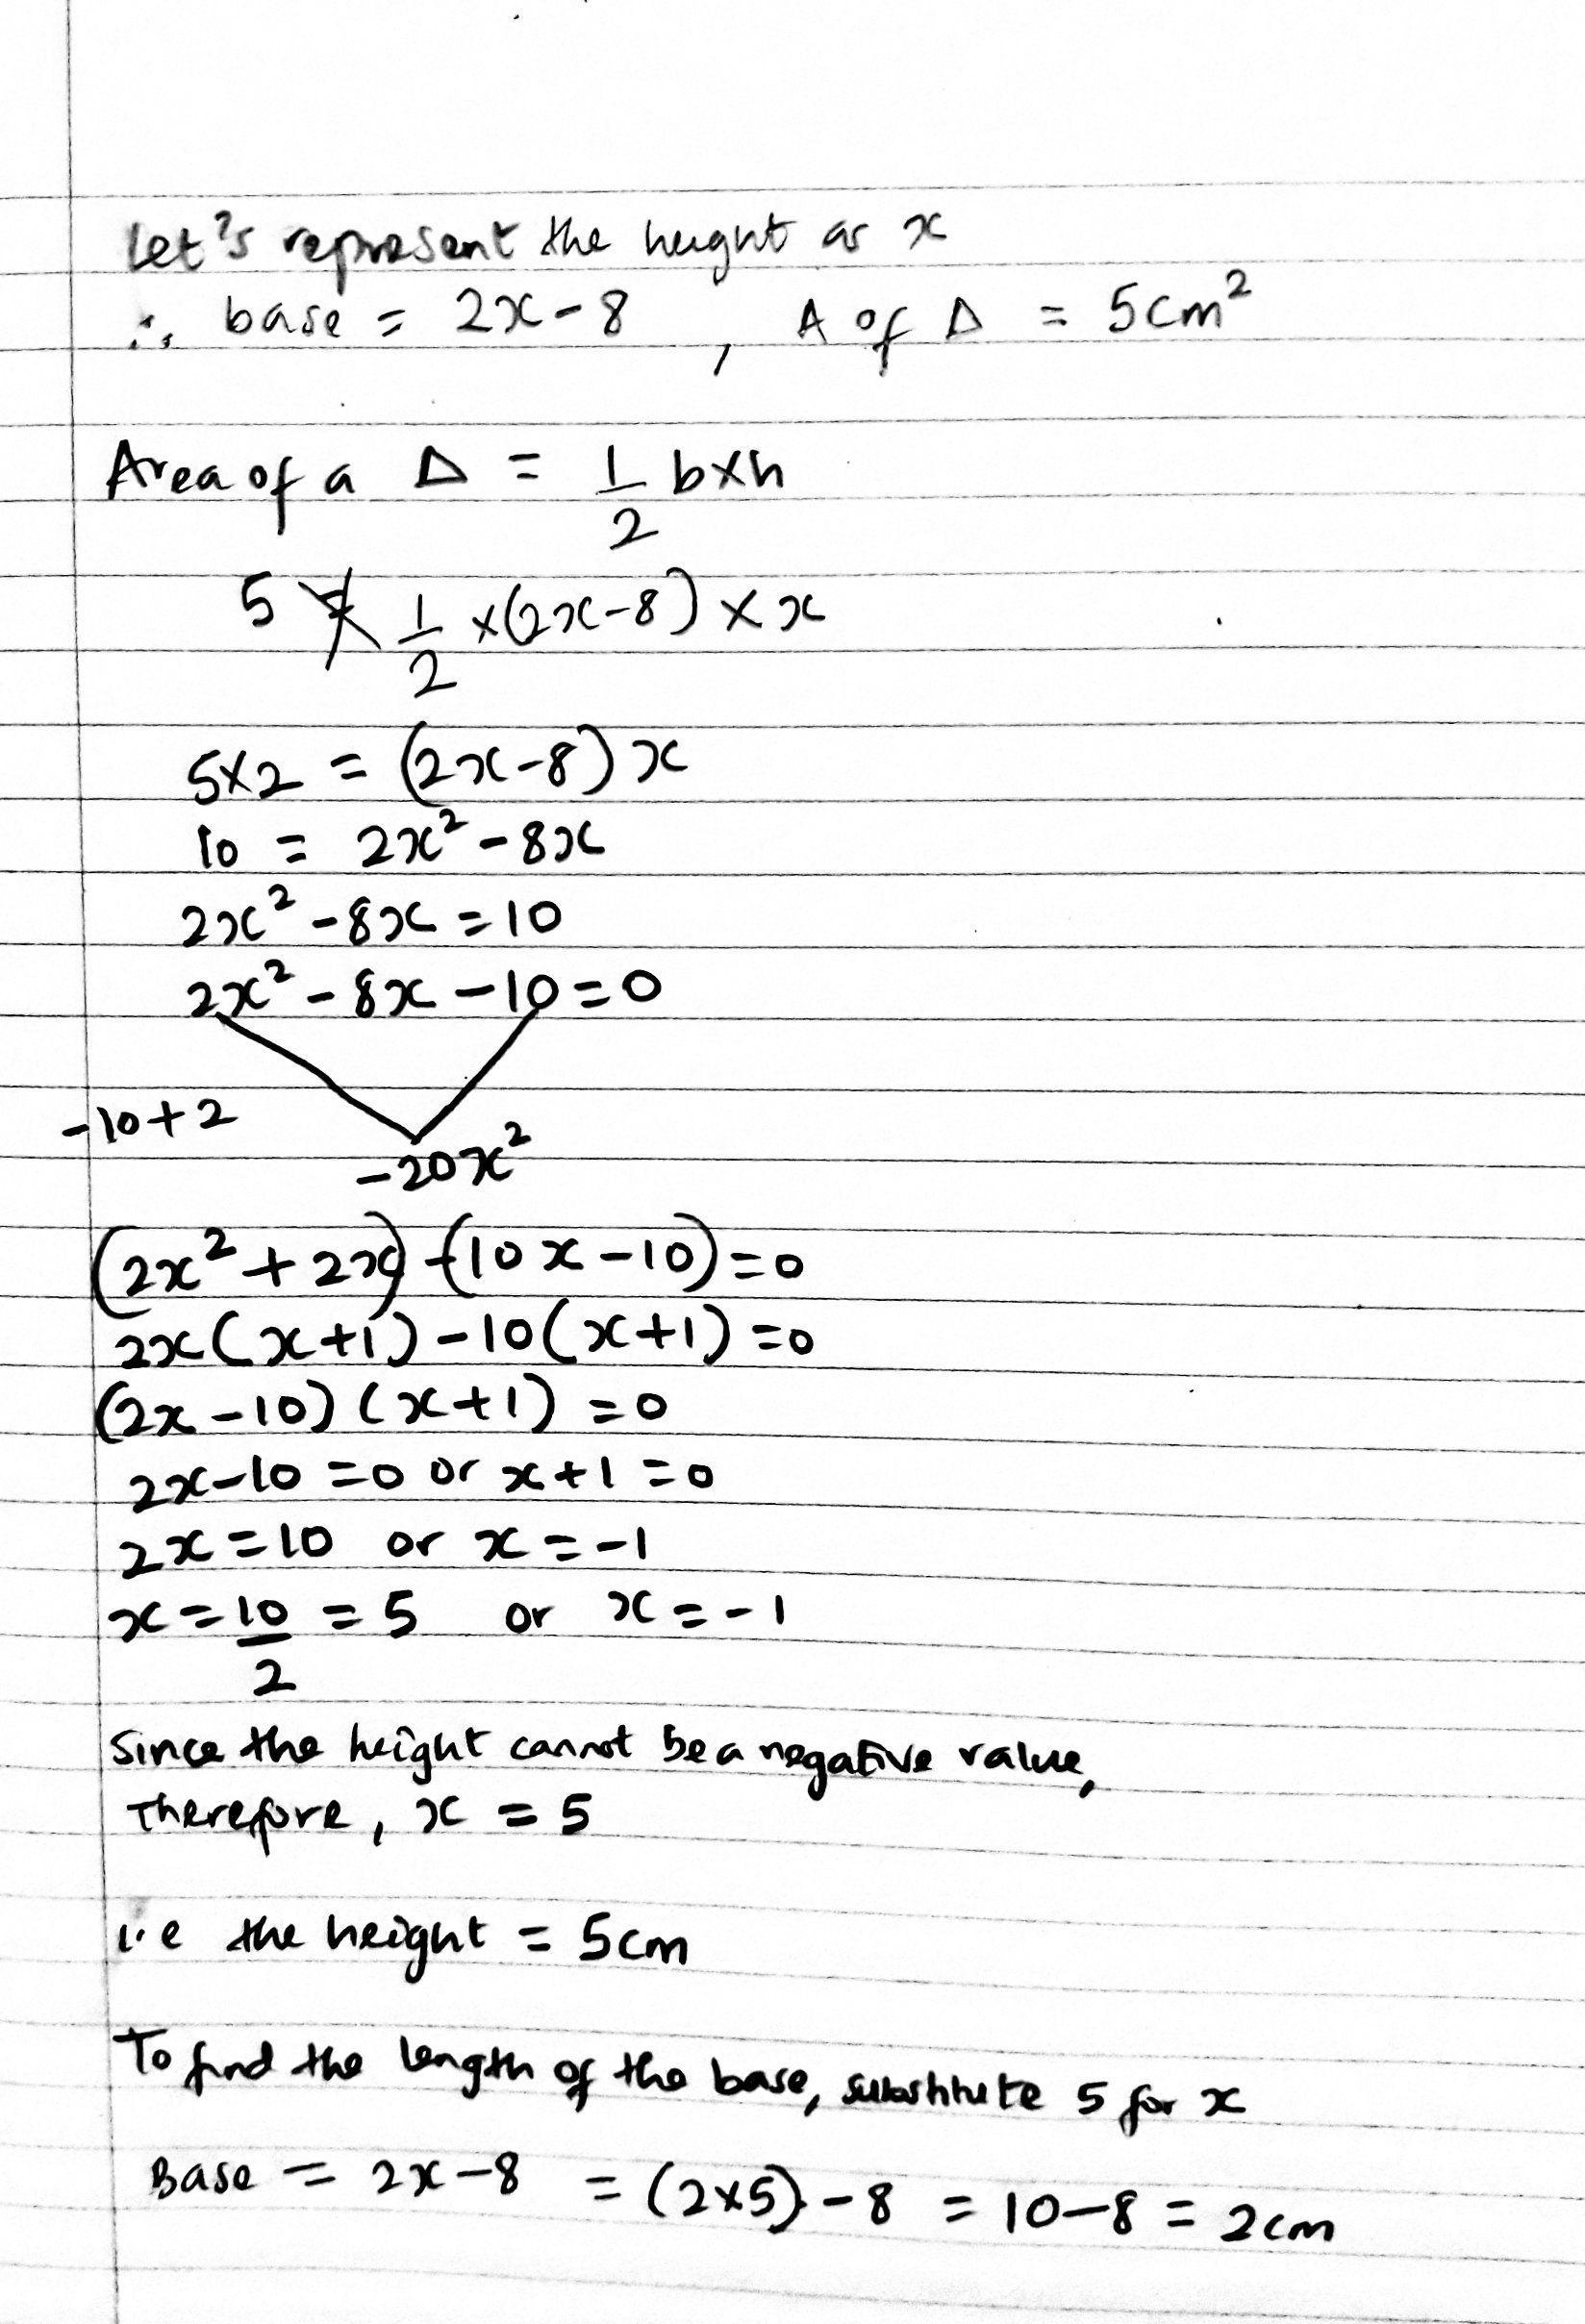 Let's represent the height as x
∴ base = 2x-8 , A of Δ = 5cm²
Area of a Δ = 1/2 b×h
5 = 1/2 ×(2x-8) × x
5×2 = (2x-8) x
10 = 2x² - 8x
2x² - 8x = 10
2x² - 8x - 10 = 0
-10+2
-20x²
(2x² + 2x) -(10x - 10) = 0
2x(x+1) - 10(x+1) = 0
(2x - 10) (x+1) = 0
2x-10 = 0 or x+1 = 0
2x = 10 or x = -1
x = 10/2 = 5 or x = -1
Since the height cannot be a negative value,
Therefore, x = 5
i.e the height = 5cm
To find the length of the base, substitute 5 for x
Base = 2x-8 = (2×5) - 8 = 10-8 = 2cm